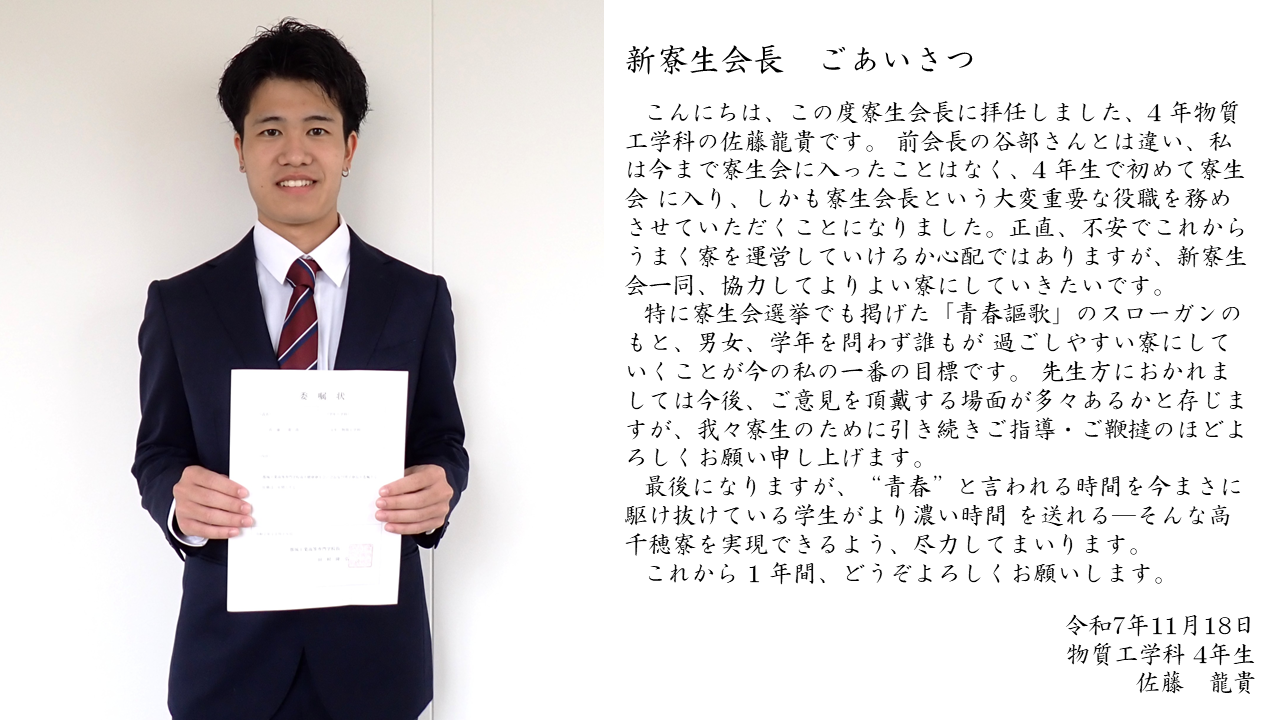 新寮生会長　ごあいさつ
こんにちは、この度寮生会長に拝任しました、4 年物質
工学科の佐藤龍貴です。 前会長の谷部さんとは違い、私
は今まで寮生会に入ったことはなく、4 年生で初めて寮生
会 に入り、しかも寮生会長という大変重要な役職を務め
させていただくことになりました。正直、不安でこれから
うまく寮を運営していけるか心配ではありますが、新寮生
会一同、協力してよりよい寮にしていきたいです。
特に寮生会選挙でも掲げた「青春謳歌」のスローガンの
もと、男女、学年を問わず誰もが 過ごしやすい寮にして
いくことが今の私の一番の目標です。 先生方におかれま
しては今後、ご意見を頂戴する場面が多々あるかと存じま
すが、我々寮生のために引き続きご指導・ご鞭撻のほどよ
ろしくお願い申し上げます。
最後になりますが、“青春”と言われる時間を今まさに
駆け抜けている学生がより濃い時間 を送れる―そんな高
千穂寮を実現できるよう、尽力してまいります。
これから 1 年間、どうぞよろしくお願いします。
令和7年11月18日
物質工学科 4年生
佐藤　龍貴
委嘱状